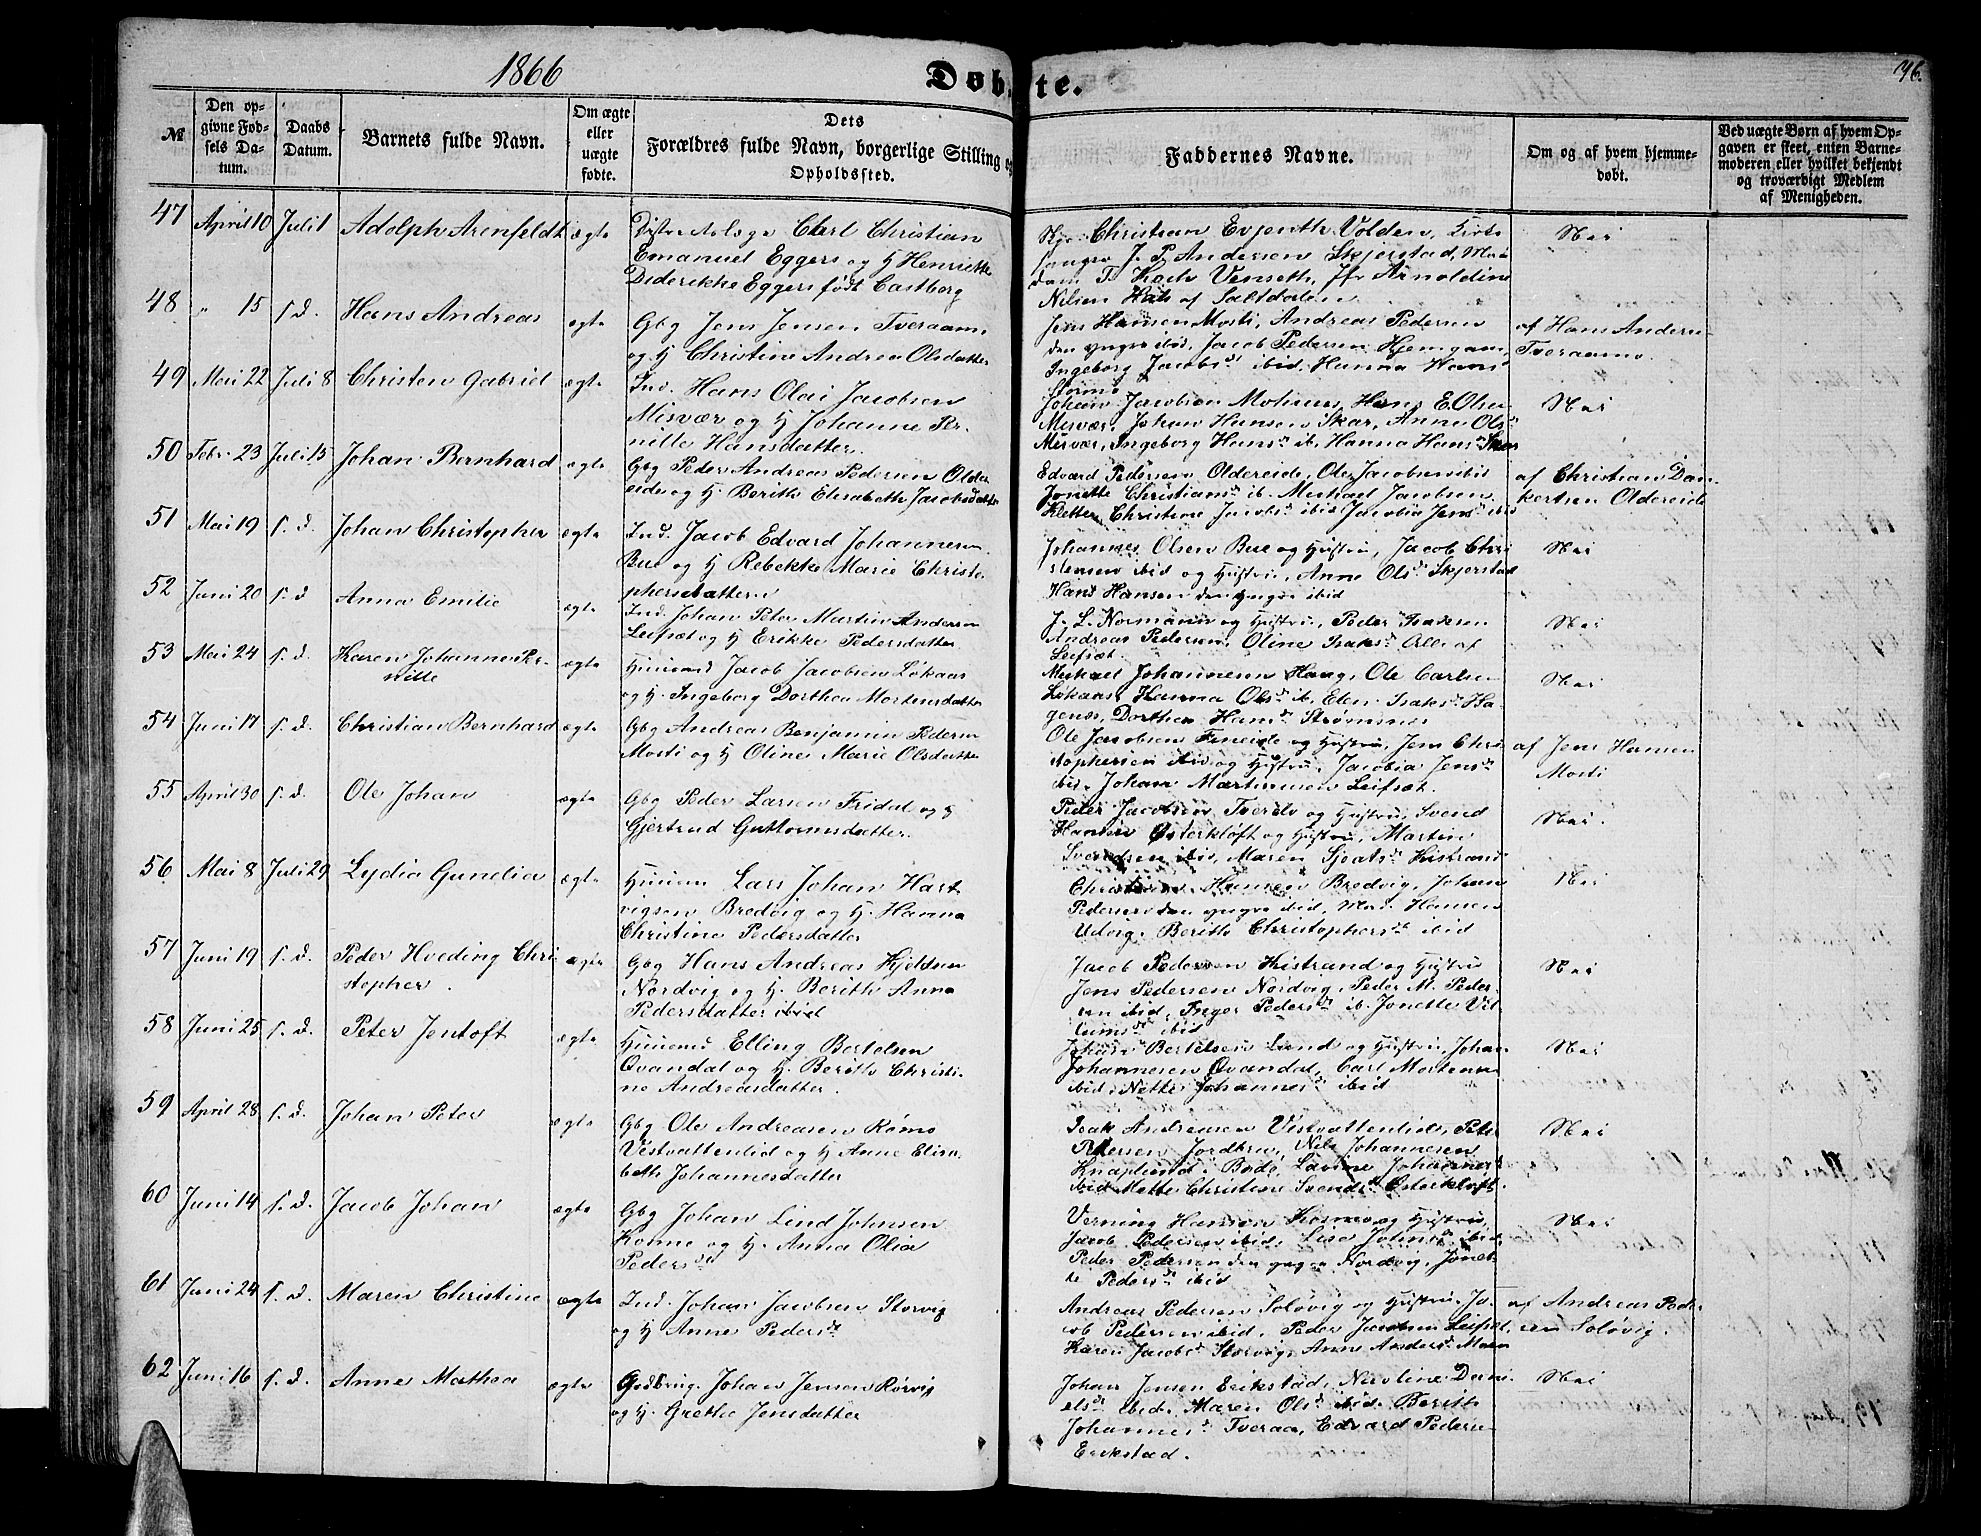 1866
Døbte.
76.
№
Den opgivne Fødsels Datum.
Daabs Datum.
Barnets fulde Navn.
Om ægte eller uægte fødte.
Dets Forældres fulde Navn, borgerlige Stilling og Opholdssted.
Faddernes Navne.
Om og af hvem hjemmedøbt.
Ved uægte Børn af hvem Opgaven er skeet, enten Barnemoderen eller hvilket bekjendt og troværdigt Medlem af Menigheden.
47 April 10 Juli 1 Adolph Arenfeldt ægte
Carl Christian
Emanuel Eggers og H Henriette
Diderikke Eggers født Castborg
Christian Evjenth Volden, Kirke
sanger J. P. Andersen Skjerstad, Ma
dam Venseth, Jfr Arnoldine
Nilsen af Saltdalen
Nei
48 " 15 s. d. Hans Andreas ægte
Gbg Jens Jensen Tveraamo
og H Christine Andrea Olsdatter
Jens Hansen Mosti, Andreas Pedersen
den yngre ibid, Jacob Pedersen Hjemgam,
Ingeborg Jacobsd ibid. Hanna Hans
Størmo
af Hans Andersen
Tveraamo.
49 Mai 22 Juli 8 Christen Gabriel ægte
Ind. Hans Olai Jacobsen
Misvær og H Johanne Per
nille Hansdatter.
Johan Jacobsen Mohus, Hans E. Olsen
Misvær, Johan Hansen Skar, Anna Ols
Misvær, Ingeborg Hansd ib, Hanna Hansd Skar
Nei
50 Febr. 23 Juli 15 Johan Bernhard ægte
Gbg Peder Andreas Pedersen Older
eide og H. Berith Elisabeth Jacobsdatter
Edvard Pedersen Oldereide, Ole Jacobsen ibid
Jonette Christiansd ib. Michael Jacobsen
Kletten, Christine Jacobsd ibid Jacobia Jensd ibid
af Christian Dan
kertsen Oldereide
51 Mai 19 s. d. Johan Christopher ægte
Ind. Jacob Edvard Johannesen
Bue og H Rebekka Marie Christo
phersdatter
Johannes Olsen Bue og Hustru, Jacob Chri
stensen ibid og Hustru, Anne Olsd Skjerstad
Hans Hansen den yngre ibid
Nei
52 Juni 20 s. d Anna Emilie ægte
Ind. Johan Peter Martin Andersen
Leifset og H Erikke Pedersdatter
J. L. Normann og Hustru, Peder Isaksen
Andreas Pedersen, Oline Isaksd Alle af
Leifset.
Nei
53 Mai 24 s. d. Karen Johanne Per-
nille ægte
Huusmd Jacob Jacobsen Løkaas
og H. Ingeborg Dorthea Mortensdatter
Michael Johannesen Haug, Ole Carlsen
Løkaas, Hanna Olsd ib, Elen Isaksd Ha
genæs, Dorthea Hansd Strømsnes
Nei
54 Juni 17 s. d. Christian Bernhard ægte
Gbg Andreas Benjamin Pedersen
Mosti og H Oline Marie Olsdatter
Ole Jacobsen Fineide og Hustru, Jens Chri
stophersen ibid og Hustru, Jacobia Jensd
ibid. Johan Martinussen Leifset.
af Jens Hansen
Mosti
55 April 30 s. d. Ole Johan ægte
Gbg Peder Larsen Fridal og H
Gjertrud Guttormsdatter.
Peder Jacobsen Tverelv og Hustru, Svend
Hansen Østerkløft og Hustru, Martin
Svendsen ibid, Maren Sjoatsd Kistrand
Nei.
56 Mai 8 Juli 29 Lydia Gunelia ægte
Huusm Lars Johan Hart
vigsen Bredvig og H. Hanna
Christine Pedersdatter
Hansen Bredvig, Johan
Pedersen den yngre ibid, Mad. Hansen
Udvig. Berith Christophersd ibid
Nei
57 Juni 19 s. d. Peder Hveding Chri
stopher. ægte
Gbg Hans Andreas Kjeldsen
Nordvig og H. Berith Anna
Pedersdatter ibid
Jacob Pedersen Kistrand og Hustru
Jens Pedersen Nordvig, Peder M. Peder
sen ibid, Inger Pedersd ib. Jonette Vil
lumsd ibid
Nei
58 Juni 25 s. d. Peter Jentoft ægte
Huusmd Elling Bertelsen
Qvandal og H. Berith Christi
ne Andreasdatter.
Johan Bertelsen Lund og Hustru, Johan
Johannesen Qvandal, Carl Mortensen
ibid. Nette Johannesd ibid
Nei
59 April 28 s. d. Johan Peter ægte
Gbg Ole Andreasen Rømo
Vestvattenlid og H Anne Elisa
beth Johannesdatter
Isak Andreasen Vestvattenlid, Peter
Petersen Jordbru, Nils Johannesen
Knaplund i Bodø, Lavine Johannesd
ibid. Mette Christine Svendsd Østerkløft
Nei
60 Juni 14 s. d. Jacob Johan ægte
Gbg Johan Lind Johnsen
og H. Anna Olia
Pedersd
Verning Hansen og Hustru,
Jacob Pedersen ibid, Lise Johnsd ibid,
Peder Pedersen den yngre Nordvig, Jonet
te Pedersd ibid
Nei
61 Juni 24 s. d. Maren Christine ægte
Ind. Johan Jacobsen Storvig
og H Anne Pedersd
Andreas Pedersen Soløvig og Hustru. Ja-
cob Pedersen ibid. Peder Jacobsen Leifset,
Karen Jacobsd Storvig, Anne Andersd Moen
af Andreas Peder
sen Soløvig.
62 Juni 16 s. d. Anne Mathea ægte
Gaardbrug. Johan Jensen Rørvig
og H. Grethe Jensdatter
Johan Jensen Erikstad, Nicoline Dani
elsd ibid. Maren Olsd ibid. Berith
Johannesd Tveraa, Edvard Pedersen
Erikstad.
Nei